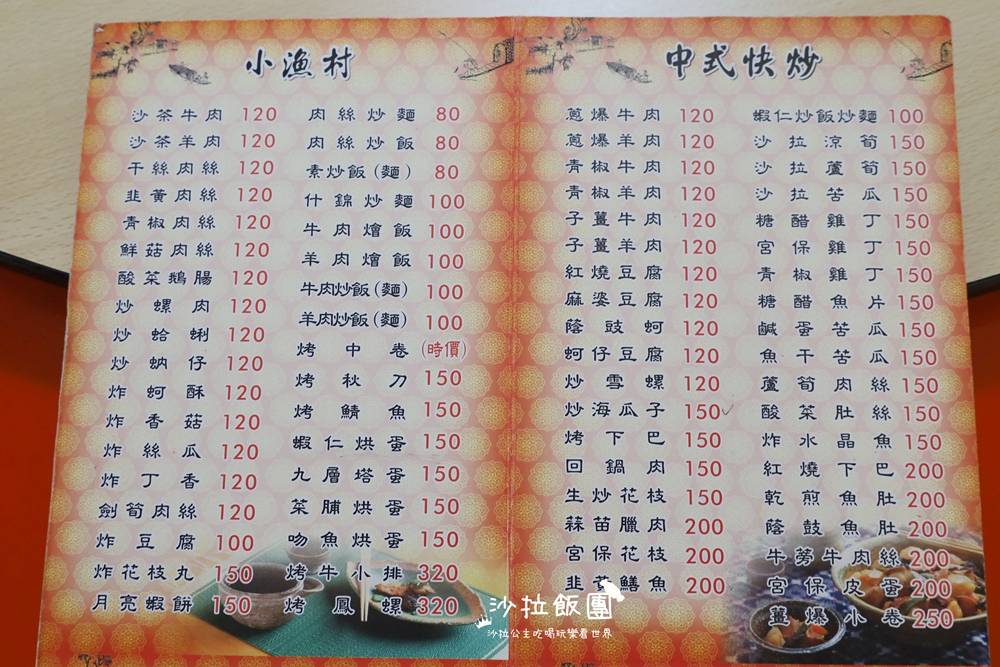 小漁村
沙茶牛肉 120
沙茶羊肉 120
干絲肉絲 120
韭黃肉絲 120
青椒肉絲 120
鮮菇肉絲 120
酸菜鵝腸 120
炒螺肉 120
炒蛤蜊 120
炒蚋仔 120
炸蚵酥 120
炸香菇 120
炸絲瓜 120
炸丁香 120
劍筍肉絲 120
炸豆腐 100
炸花枝丸 150
月亮蝦餅 150
肉絲炒麵 80
肉絲炒飯 80
素炒飯(麵) 80
什錦炒麵 100
牛肉燴飯 100
羊肉燴飯 100
牛肉炒飯(麵) 100
羊肉炒飯(麵) 100
烤中卷 (時價)
烤秋刀 150
烤鯖魚 150
蝦仁烘蛋 150
九層塔蛋 150
菜脯烘蛋 150
吻魚烘蛋 150
烤牛小排 320
烤鳳螺 320
中式快炒
蔥爆牛肉 120
蔥爆羊肉 120
青椒牛肉 120
青椒羊肉 120
子薑牛肉 120
子薑羊肉 120
紅燒豆腐 120
麻婆豆腐 120
蔭豉蚵 120
蚵仔豆腐 120
炒雪螺 120
炒海瓜子 150
烤下巴 150
回鍋肉 150
生炒花枝 150
蒜苗臘肉 200
宮保花枝 200
韭菜鱔魚 200
蝦仁炒飯炒麵 100
沙拉涼筍 150
沙拉蘆筍 150
沙拉苦瓜 150
糖醋雞丁 150
宮保雞丁 150
青椒雞丁 150
糖醋魚片 150
鹹蛋苦瓜 150
魚干苦瓜 150
蘆筍肉絲 150
酸菜肚絲 150
炸水晶魚 150
紅燒下巴 200
乾煎魚肚 200
蔭鼓魚肚 200
牛蒡牛肉絲 200
宮保皮蛋 200
薑爆小卷 250
沙拉飯團
沙拉公主吃喝玩樂看世界